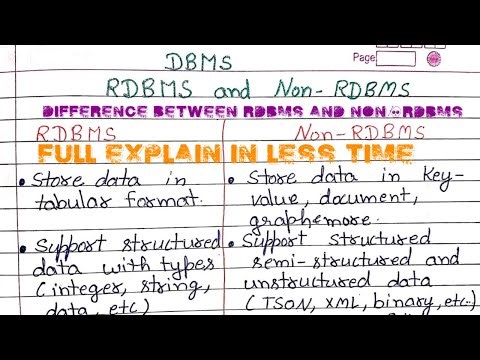 Page
DBMS
RDBMS and Non-RDBMS
DIFFERENCE BETWEEN RDBMS AND NON-RDBMS
RDBMS
Non-RDBMS
FULL EXPLAIN IN LESS TIME
• Store data in
tabular format.
• Support structured
data with types
(integer, string,
data, etc)
• Store data in key-
value, document,
graph&more.
• Support structured
semi-structured and
unstructured data
(JSON, XML, binary, etc..)